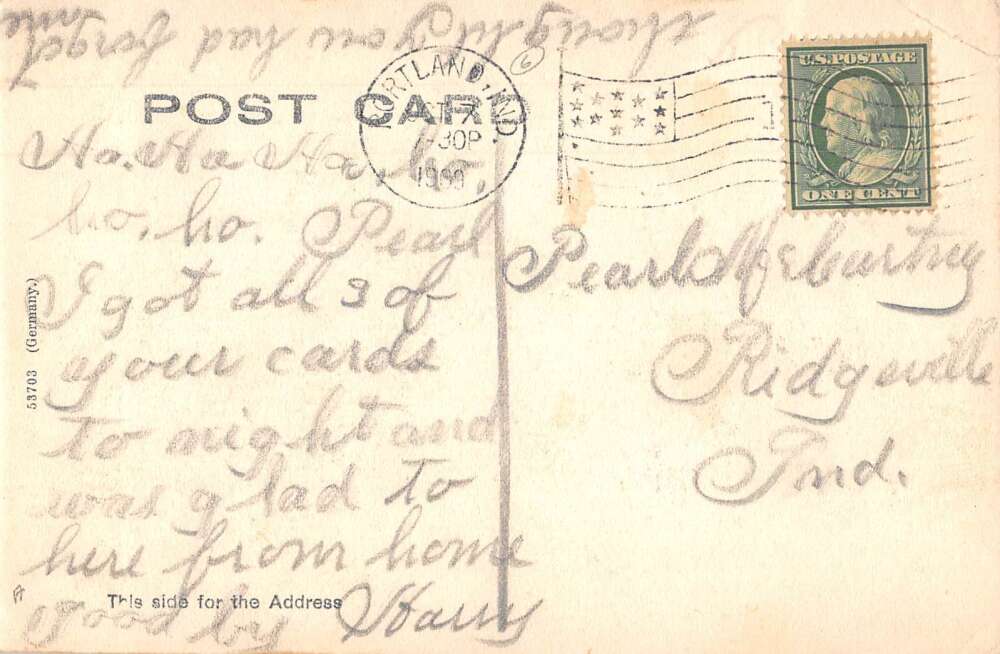 thought you had forgot
me
POST CARD
PORTLAND, IND.
30P
U.S. POSTAGE
ONE CENT
Ha. Ha Ha, ho,
ho, ho. Pearl
I got all 3 of
your cards
to night and
was glad to
here from home
good by Harry
Pearl
Ridgeville
Ind.
53703 (Germany.)
This side for the Address